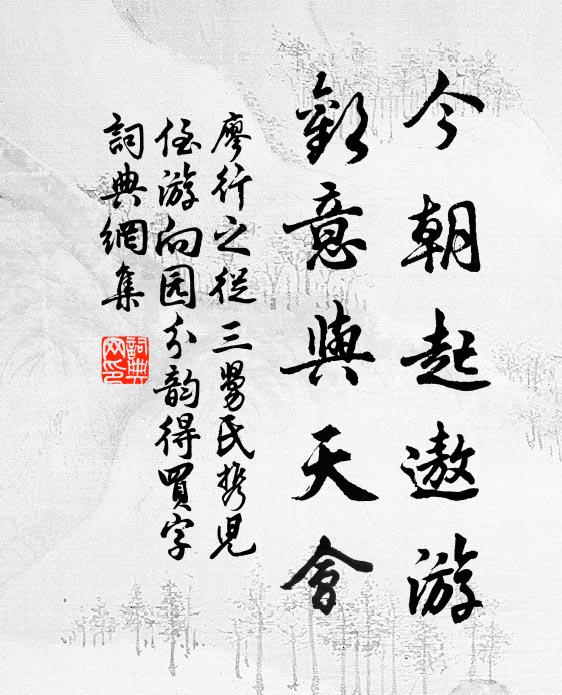 今朝起遨游
歡意與天會
廖行之從三舅氏携兒
侄游向园分韵得買字
詞典網集
詞典网印